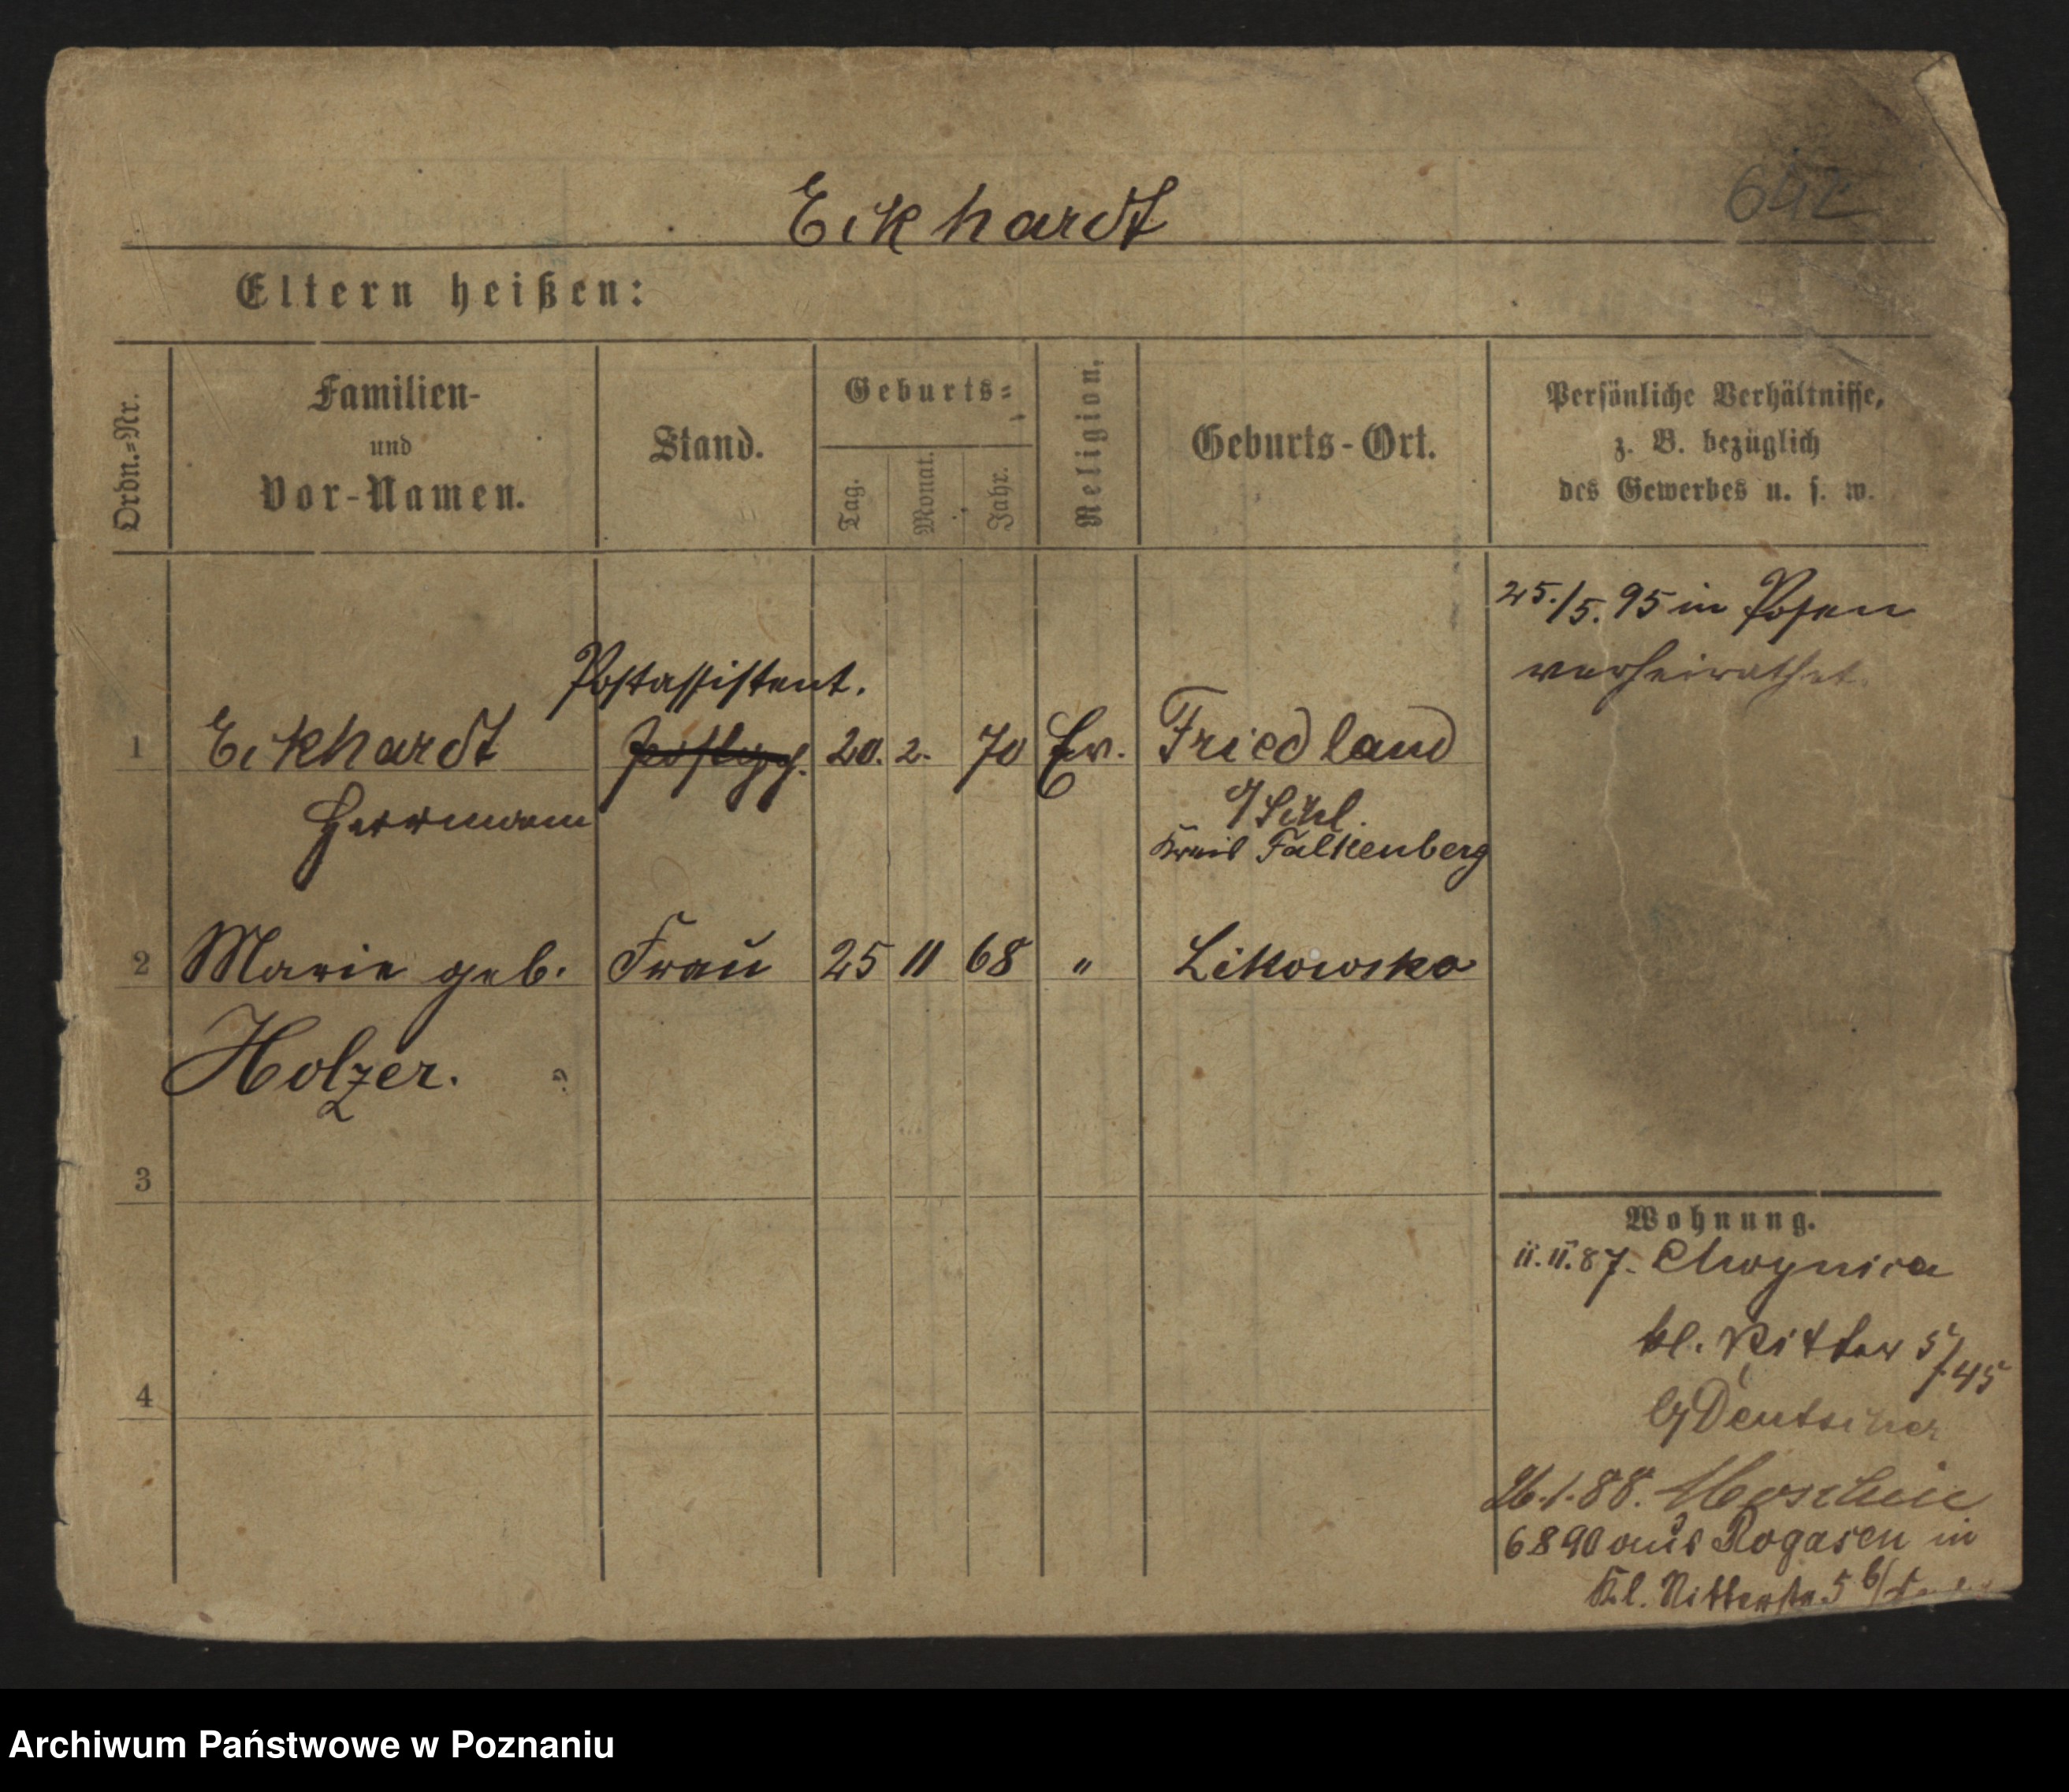 Eckhardt
642
Eltern heißen:
Ordn.-Nr.
Familien-
und
Vor-Namen.
Stand.
Geburts-
Tag.
Monat.
Jahr.
Religion.
Geburts-Ort.
Persönliche Verhältnisse,
z. B. bezüglich
des Gewerbes u. s. w.
25./5. 95 in Posen
verheirathet.
Postassistent.
1 Eckhardt 20. 2. 70 Ev. Friedland
Herrmann
O/Schl.
Kreis Falkenberg
2 Marie geb. Frau 25 11 68 " Likowsko
Holzer.
3
4
Wohnung.
11.11.87.
kl. Ritter 5/45
b/Deutscher
26.1.88. Moschin
6 8 90 aus Rogasen in
Kl. Ritterstr. 5 b/
Archiwum Państwowe w Poznaniu